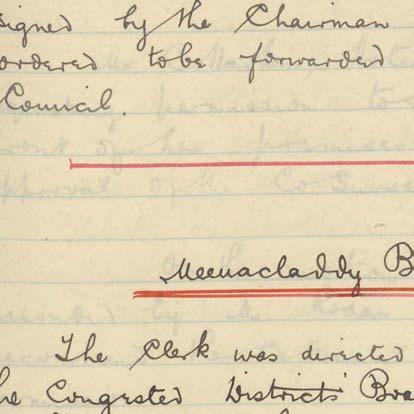 signed by the Chairman
ordered to be forwarded
Council.
Meenacladdy B
The Clerk was directed
he Congested Districts' Boa